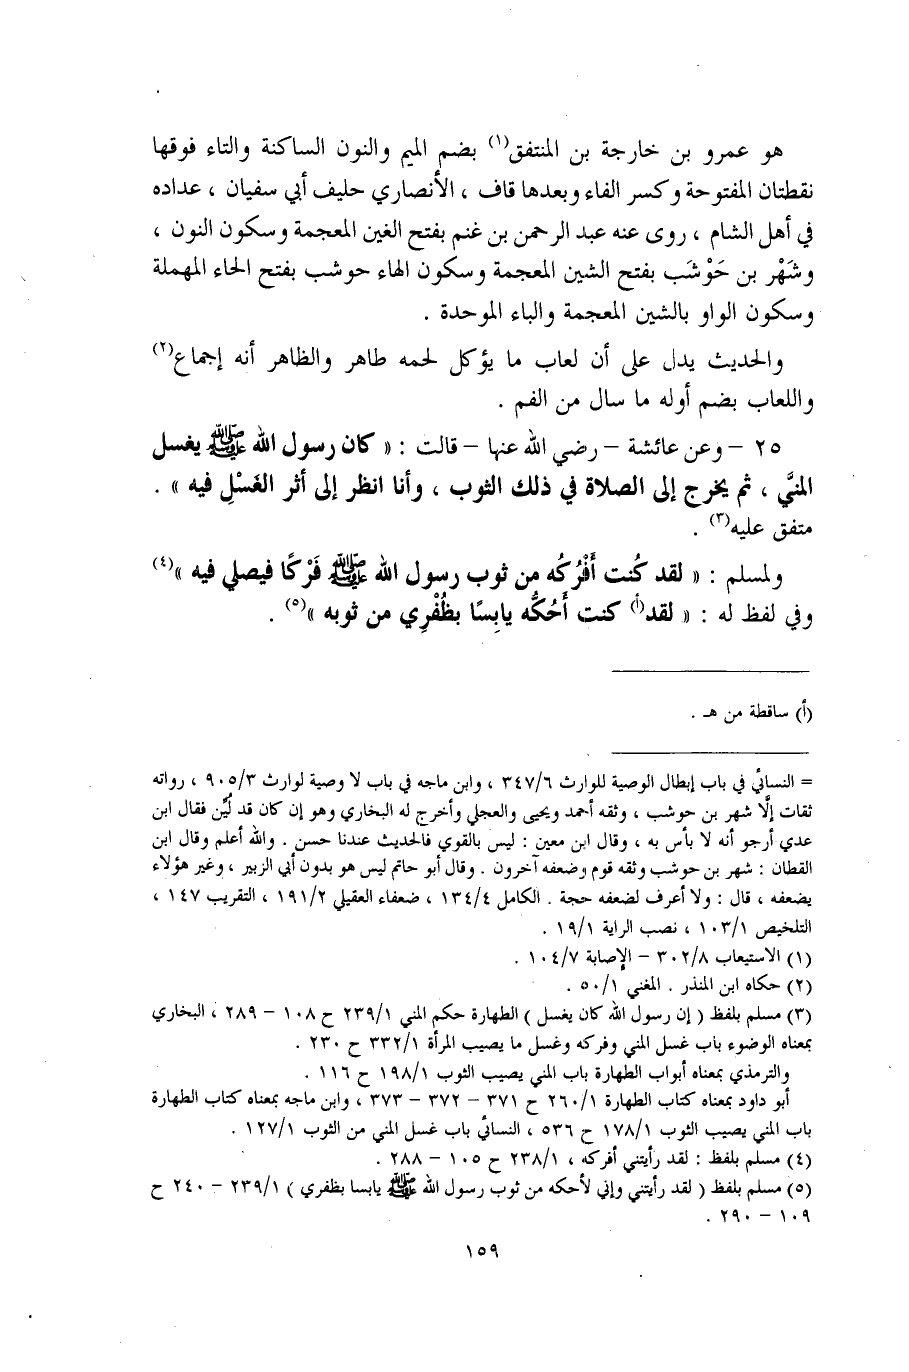 هو عمرو بن خارجة بن المنتفق(١) بضم الميم والنون الساكنة والتاء فوقها
نقطتان المفتوحة وكسر الفاء وبعدها قاف ، الأنصاري حليف أبي سفيان ، عداده
في أهل الشام ، روى عنه عبد الرحمن بن غنم بفتح الغين المعجمة وسكون النون ،
وشَهْر بن حَوْشَب بفتح الشين المعجمة وسكون الهاء حوشب بفتح الحاء المهملة
وسكون الواو بالشين المعجمة والباء الموحدة .
والحديث يدل على أن لعاب ما يؤكل لحمه طاهر والظاهر أنه إجماع(٢)
واللعاب بضم أوله ما سال من الفم .
٢٥ – وعن عائشة – رضي الله عنها – قالت : « كان رسول الله ﷺ يغسل
المنيَّ ، ثم يخرج إلى الصلاة في ذلك الثوب ، وأنا انظر إلى أثر الغَسْلِ فيه » .
متفق عليه(٣) .
ولمسلم : « لقد كُنت أَفْرُكُه من ثوب رسول الله ﷺ فَرْكًا فيصلي فيه »(٤)
وفي لفظ له : « لقد(أ) كنت أَحُكُّه يابِسًا بظُفْرِي من ثوبه »(٥) .
(أ) ساقطة من هـ .
= النسائي في باب إبطال الوصية للوارث ٣٤٧/٦ ، وابن ماجه في باب لا وصية لوارث ٩٠٥/٣ ، رواته
ثقات إلَّا شهر بن حوشب ، وثقه أحمد ويحيى والعجلي وأخرج له البخاري وهو إن كان قد لُيِّن فقال ابن
عدي أرجو أنه لا بأس به ، وقال ابن معين : ليس بالقوي فالحديث عندنا حسن . والله أعلم وقال ابن
القطان : شهر بن حوشب وثقه قوم وضعفه آخرون . وقال أبو حاتم ليس هو بدون أبي الزبير ، وغير هؤلاء
يضعفه ، قال : ولا أعرف لضعفه حجة . الكامل ١٣٤/٤ ، ضعفاء العقيلي ١٩١/٢ ، التقريب ١٤٧ ،
التلخيص ١٠٣/١ ، نصب الراية ١٩/١ .
(١) الاستيعاب ٣٠٢/٨ – الإصابة ١٠٤/٧ .
(٢) حكاه ابن المنذر . المغني ٥٠/١ .
(٣) مسلم بلفظ ( إن رسول الله كان يغسل ) الطهارة حكم المني ٢٣٩/١ ح ١٠٨ – ٢٨٩ ، البخاري
بمعناه الوضوء باب غسل المني وفركه وغسل ما يصيب المرأة ٣٣٢/١ ح ٢٣٠ .
والترمذي بمعناه أبواب الطهارة باب المني يصيب الثوب ١٩٨/١ ح ١١٦ .
أبو داود بمعناه كتاب الطهارة ٢٦٠/١ ح ٣٧١ – ٣٧٢ – ٣٧٣ ، وابن ماجه بمعناه كتاب الطهارة
باب المني يصيب الثوب ١٧٨/١ ح ٥٣٦ ، النسائي باب غسل المني من الثوب ١٢٧/١ .
(٤) مسلم بلفظ : لقد رأيتني أفركه ، ٢٣٨/١ ح ١٠٥ – ٢٨٨ .
(٥) مسلم بلفظ ( لقد رأيتني وإني لأحكه من ثوب رسول الله ﷺ يابسا بظفري ) ٢٣٩/١ – ٢٤٠ ح
١٠٩ – ٢٩٠ .
١٥٩